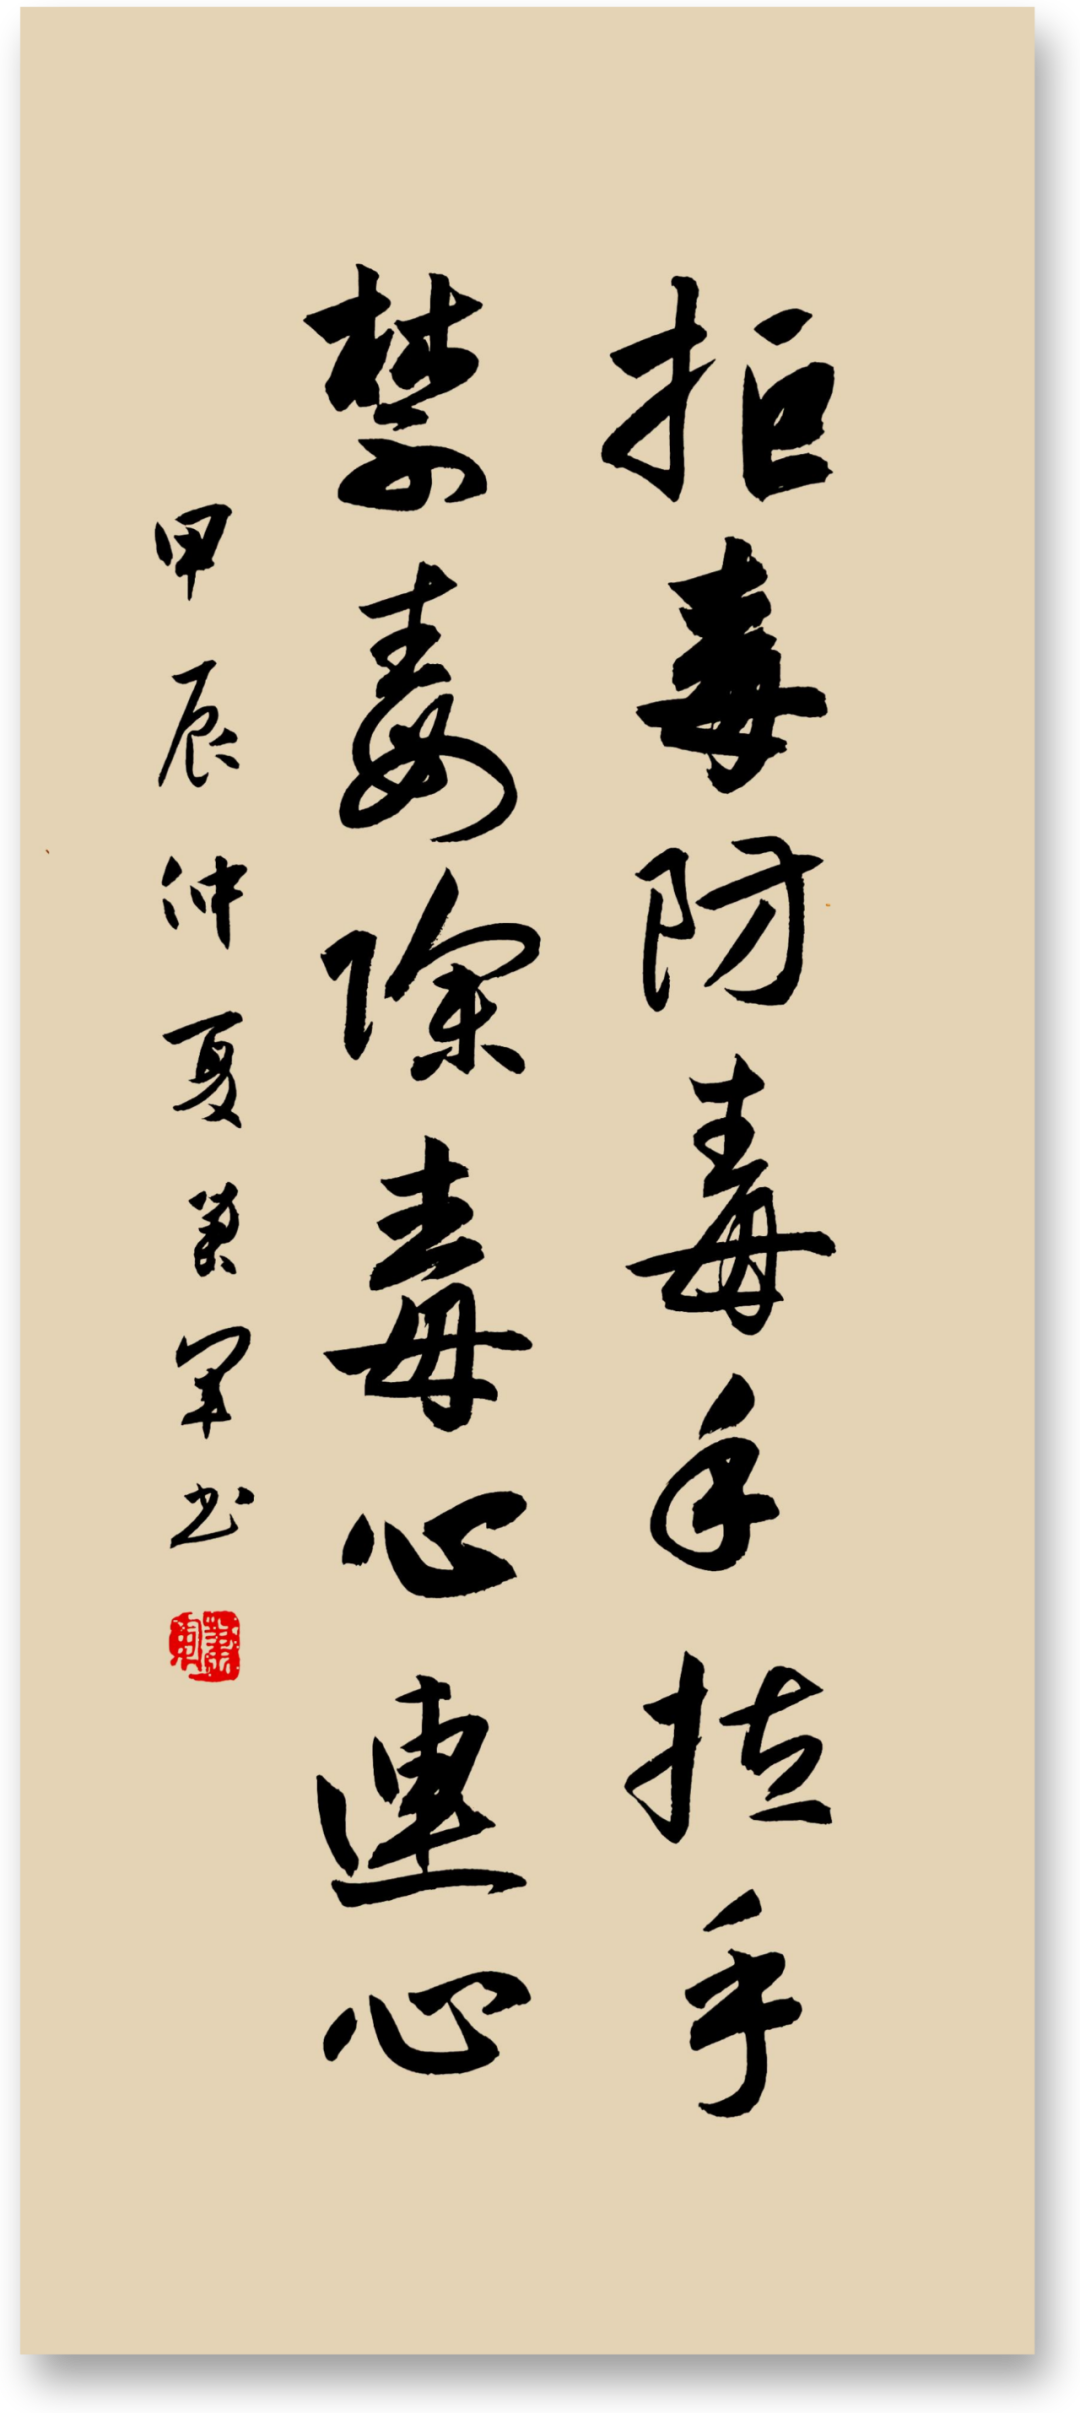 拒毒防毒手拉手
禁毒除毒心連心
甲辰仲夏萧军书